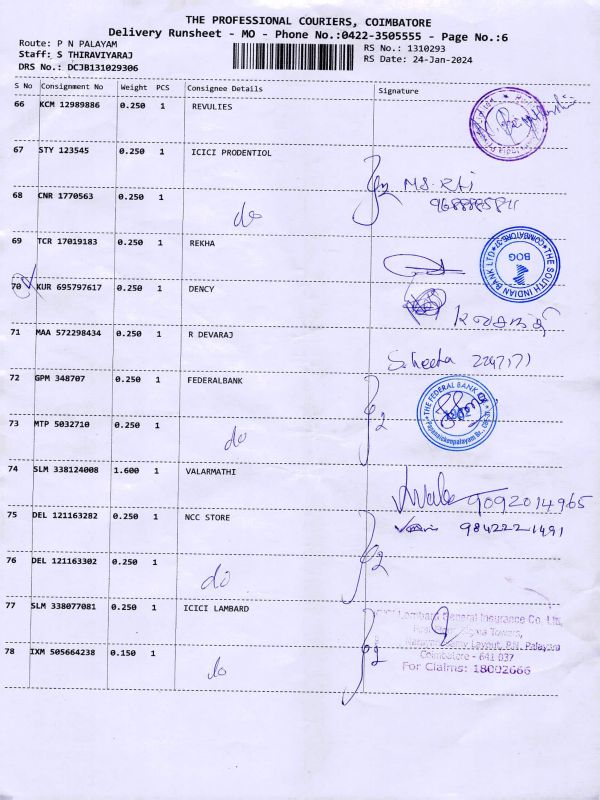 THE PROFESSIONAL COURIERS, COIMBATORE
Delivery Runsheet - MO - Phone No.:0422-3505555 - Page No.:6
Route: P N PALAYAM
RS No.: 1310293
Staff: S THIRAVIYARAJ
RS Date: 24-Jan-2024
DRS No.: DCJB131029306
S No Consignment No Weight PCS Consignee Details Signature
66 KCM 12989886 0.250 1 REVULIES
67 STY 123545 0.250 1 ICICI PRODENTIOL
68 CNR 1770563 0.250 1 do
69 TCR 17019183 0.250 1 REKHA
THE SOUTH INDIAN BANK LTD COIMBATORE-37
BOG
70 KUR 695797617 0.250 1 DENCY
71 MAA 572298434 0.250 1 R DEVARAJ
72 GPM 348707 0.250 1 FEDERALBANK
THE FEDERAL BANK
73 MTP 5032710 0.250 1 do
74 SLM 338124008 1.600 1 VALARMATHI 9092014965
75 DEL 121163282 0.250 1 NCC STORE 9842221491
76 DEL 121163302 0.250 1 do
77 SLM 338077081 0.250 1 ICICI LAMBARD
Lombard General Insurance Co. Ltd,
Towers,
Layout, P.N. Palayam
78 IXM 505664238 0.150 1 do
Coimbatore - 641 037
For Claims: 18002666